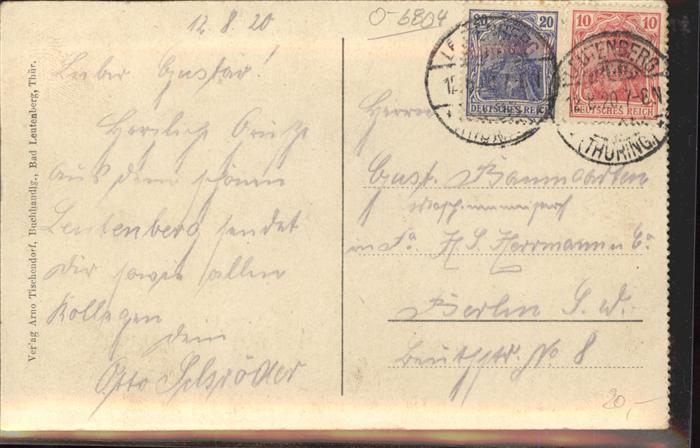 12.8.20
O-6804
Lieber Gustav!
Herzliche Grüße
aus dem schönen
Leutenberg sendet
Dir sowie allen
Kollegen
Dein
Otto
Herrn
Gust. Baumgarten
in Fa. H. S. Herrmann u Co
Berlin S. W.
Beuthstr. No 8
20,-
Verlag Arno Tischendorf, Buchhandlg., Bad Leutenberg, Thür.
20 20
DEUTSCHES REICH
10 10
DEUTSCHES REICH
LEUTENBERG
12.8.20.7-8N
(THÜRING.)